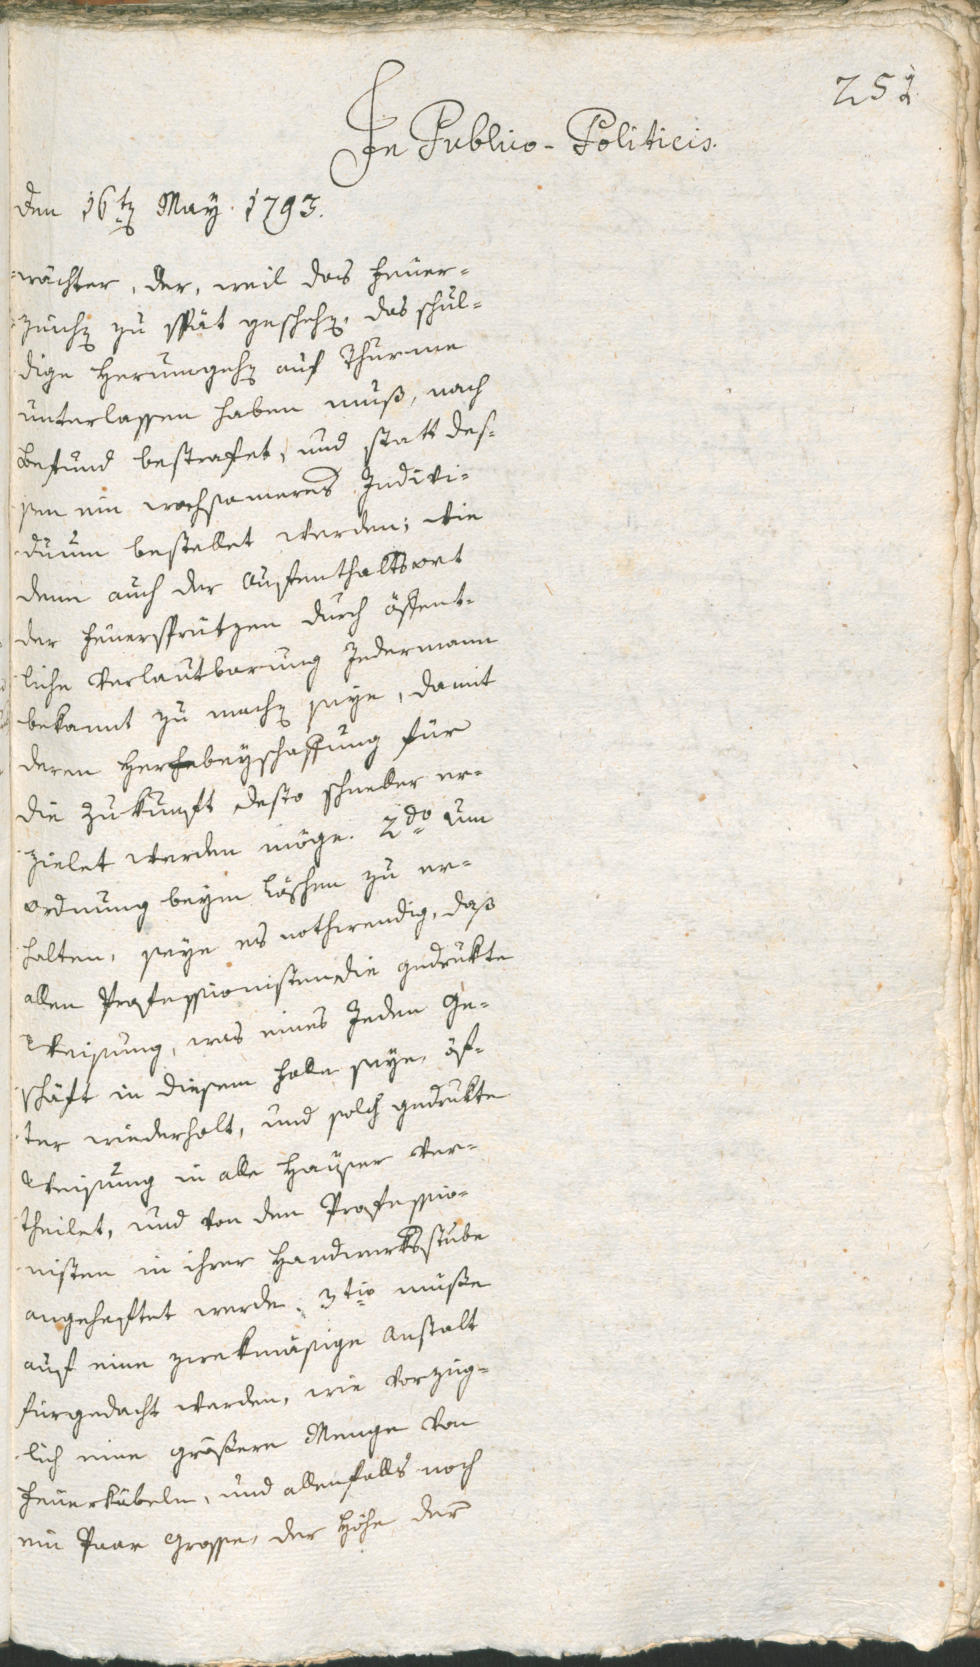 251
In Publico-Politicis.
den 16ten May 1793.
-wächter, der, weil das Feuer-
-zeichen zu spät geschehen, das schul-
dige Herumgehen auf Thurme
unterlassen haben muß, nach
Befund bestrafet, und statt des-
sen ein wachsameres Indivi-
duum bestellet werden; wie
denn auch der Aufenthaltsort
der Feuersprützen durch öffent-
liche Verlautbarung Jedermann
bekannt zu machen seye, damit
deren Herbeyschaffung für
die Zukunft desto schneller er-
zielet werden möge. 2do Um
Ordnung beym Löschen zu er-
halten, seye es nothwendig, daß
allen Professionisten die gedrukte
Weisung, was eines Jeden Ge-
schäft in diesem Falle seye, öf-
ter wiederholt, und solch gedrukte
Weisung in alle Häuser ver-
theilet, und von den Professio-
nisten in ihrer Handwerksstube
angeheftet werde. 3tio müße
auf eine zwekmäsige Anstalt
fürgedacht werden, wie vorzüg-
lich eine größere Menge von
Feuerkübeln, und allenfalls noch
ein Paar Grosse, der Höhe der